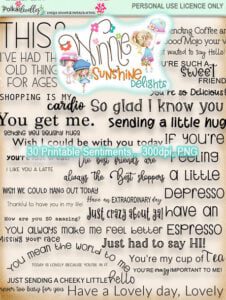 Polkadoodles
PERSONAL USE LICENCE ONLY
THIS
I'VE HAD TH
OLD THING
FOR AGES
SHOPPING IS MY
cardio
Winnie
SUNSHINE
delights
Sending Coffee an
Good Mojo your w
FRIEND
So glad I know you
You get me.
Sending a little hug
SENDING YOU SQUISHY HUGS
Wish I could be with you today
IF YOU'RE
30 Printable Sentiments, 300dpi, PNG
FEELING
I LIKE YOU A LATTE
always the Best shoppers
a little
WISH WE COULD HANG OUT TODAY!
Depresso
Thankful to have you in my life!
Have an EXTRAORDINARY day
have an
HOW ARE YOU SO AMAZING?
Just crazy about you!
You always make me feel better
Espresso
MISSING YOUR FACE
Just had to say HI!
You mean the world to me
You're my cup of tea
TODAY IS LOVELY BECAUSE YOU'RE IN IT
YOU'RE IMPORTANT TO ME!
JUST SENDING A CHEEKY LITTLE hello
never too busy for you
Have a Lovely day, Lovely